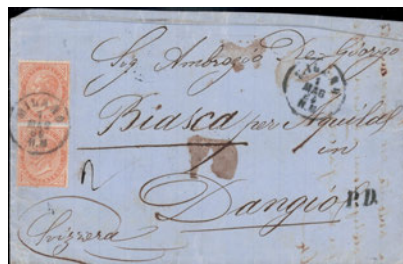 Sig Ambrogio De Giorgo
MILANO
MAG
Biasca per Aquila
in
Dangio
P.D.
Svizzera